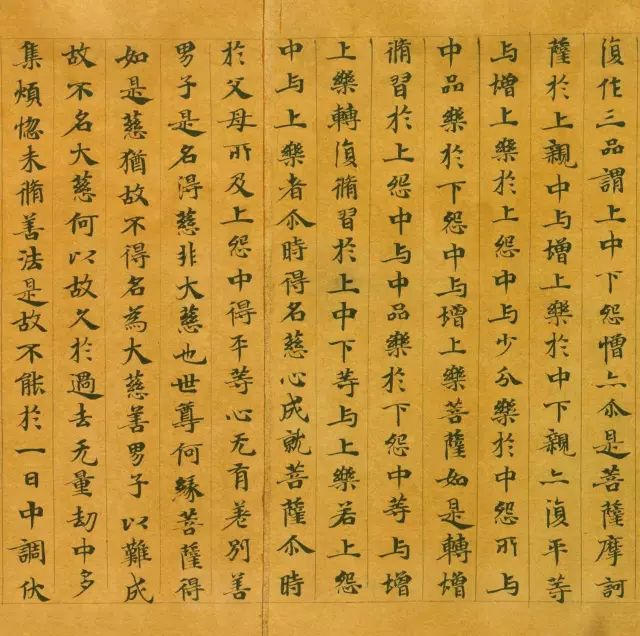 復作三品謂上中下怨憎亦尒是菩薩摩訶
薩於上親中与增上樂於中下親亦復平等
与增上樂於上怨中与少分樂於中怨所与
中品樂於下怨中与增上樂菩薩如是轉增
脩習於上怨中与中品樂於下怨中等与增
上樂轉復脩習於上中下等与上樂若上怨
中与上樂者尒時得名慈心成就菩薩尒時
於父母所及上怨中得平等心无有差別善
男子是名得慈非大慈也世尊何緣菩薩得
如是慈猶故不得名為大慈善男子以難成
故不名大慈何以故久於過去无量劫中多
集煩惱未脩善法是故不能於一日中調伏